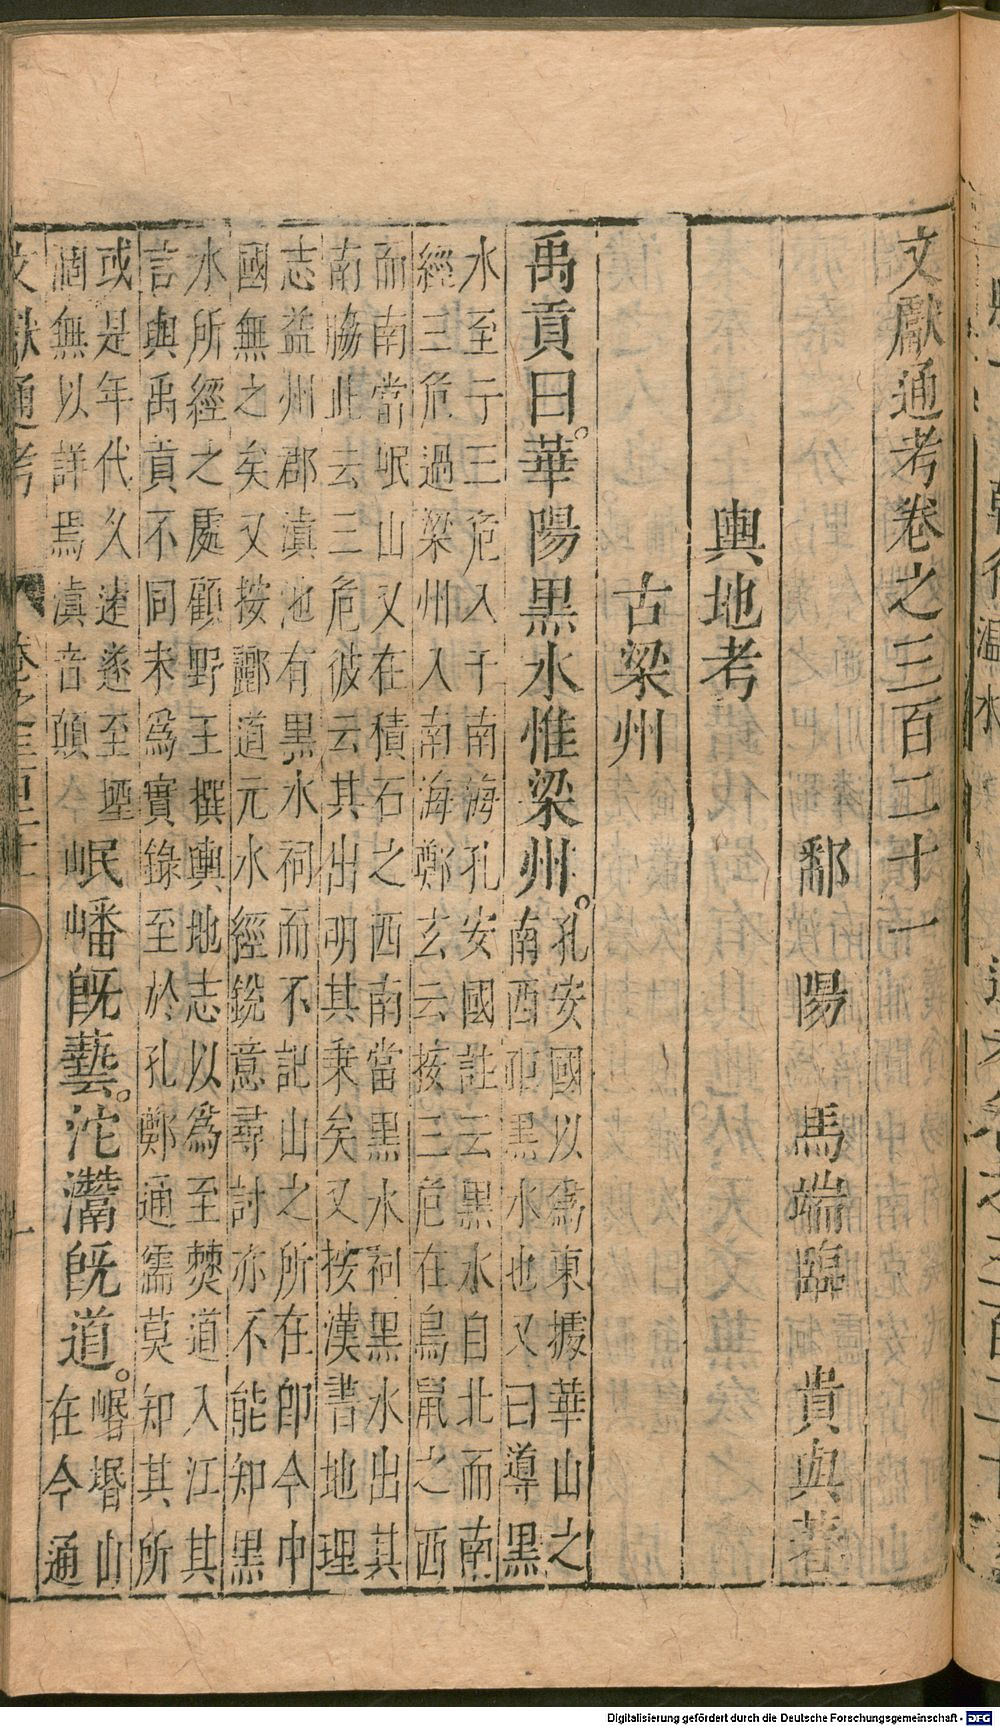 文獻通考卷之三百二十一
鄱陽 馬端臨 貴與著
輿地考
古梁州
禹貢曰。華陽黑水惟梁州。
孔安國以爲東據華山之
南西距黑水也又曰導黑
水至于三危入于南海孔安國註云黑水自北而南
經三危過梁州入南海鄭玄云按三危在鳥鼠之西
而南當岷山又在積石之西南當黑水祠黑水出其
南脇此去三危彼云其出明其乗矣又按漢書地理
志益州郡滇池有黑水祠而不記山之所在卽今中
國無之矣又按酈道元水經銳意尋討亦不能知黑
水所經之處顧野王撰輿地志以爲至僰道入江其
言與禹貢不同未爲實錄至於孔鄭通儒莫知其所
或是年代久遠遂至堙
涸無以詳焉滇音顛
岷嶓旣藝。沱灊旣道。
㟭㟭山
在今通
文獻通考
卷之三百二十一
一
Digitalisierung gefördert durch die Deutsche Forschungsgemeinschaft - DFG